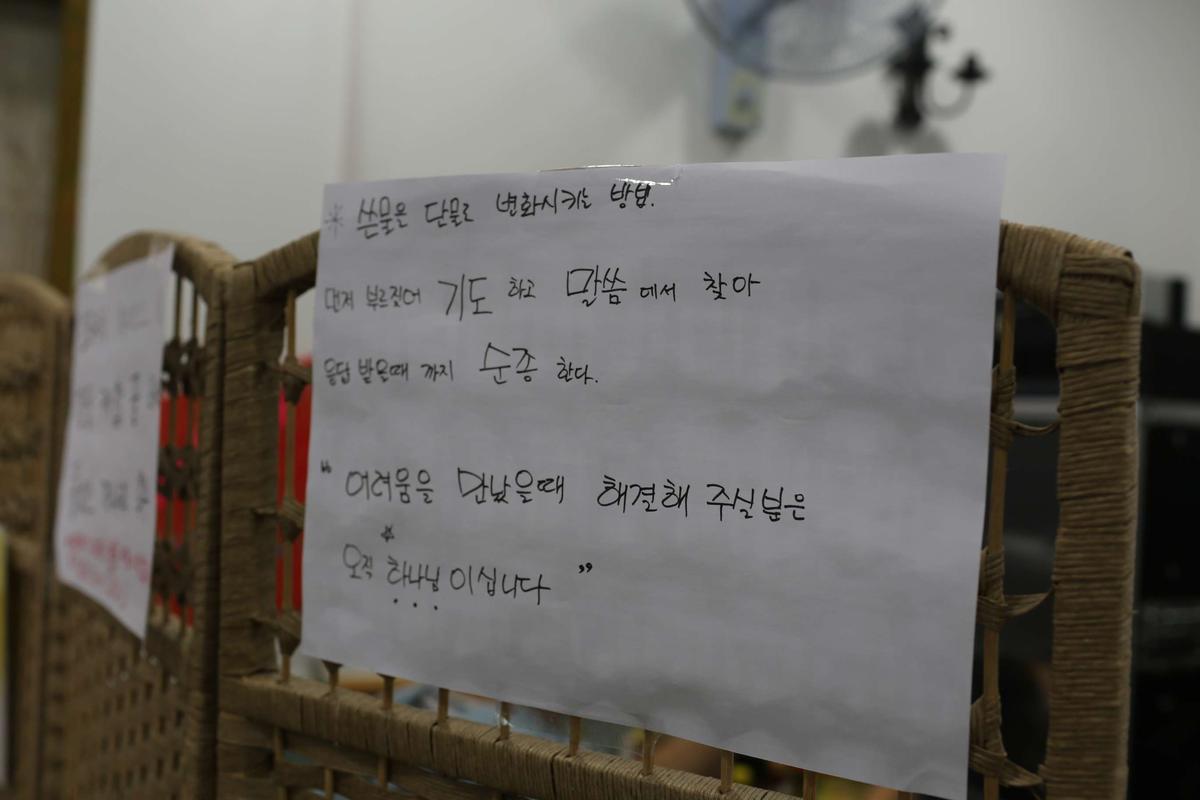 ※ 쓴물은 단물로 변화시키는 방법.
먼저 부르짖어 기도 하고 말씀 에서 찾아
응답 받을때 까지 순종 한다.
“ 어려움을 만났을때 해결해 주실분은
오직 하나님 이십니다 ”